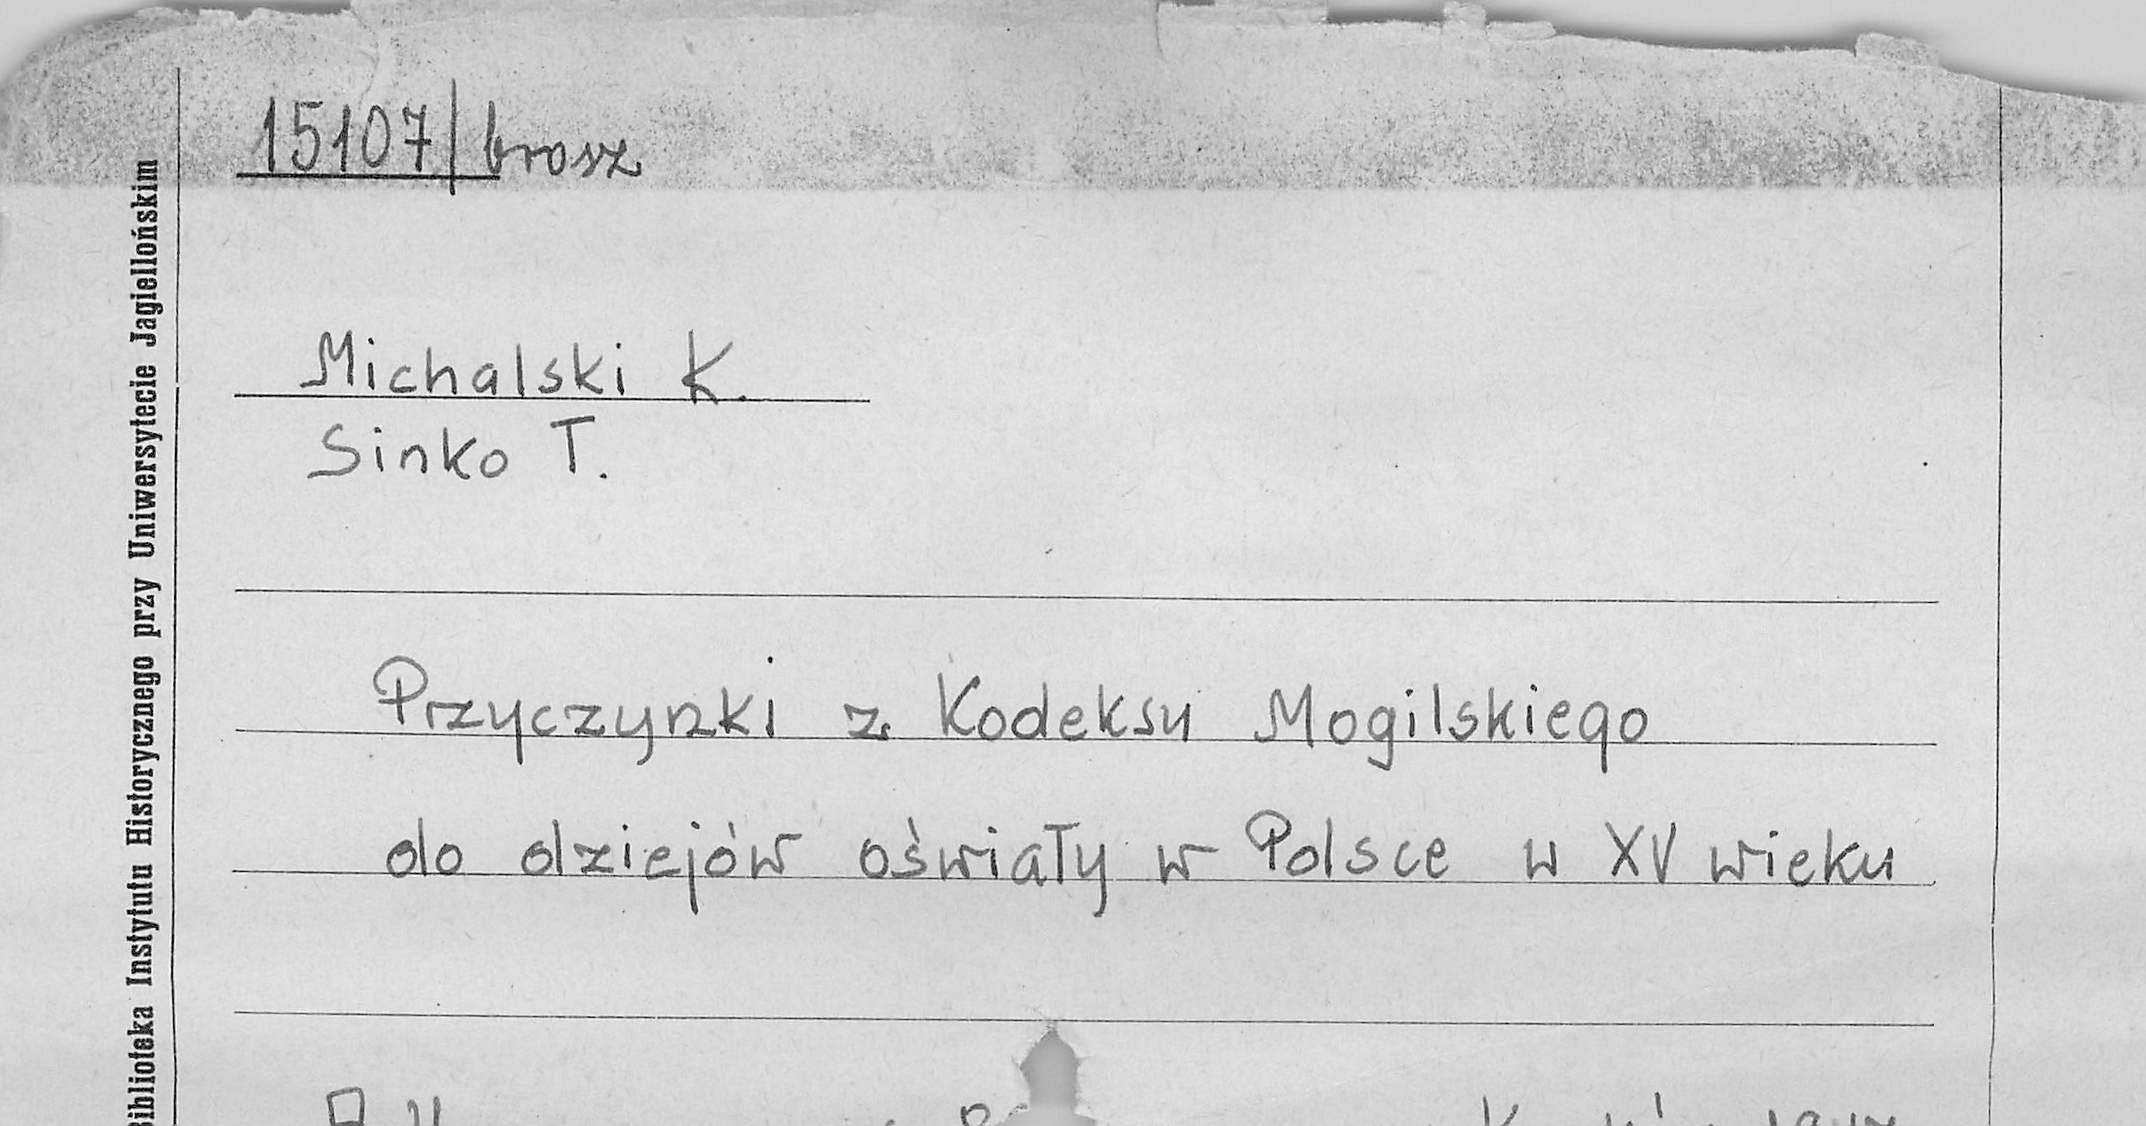 15107/brosz
Michalski K.
Sinko T.
Przyczynki z Kodeksu Mogilskiego
do dziejów oświaty w Polsce w XV wieku
Biblioteka Instytutu Historycznego przy Uniwersytecie Jagiellońskim